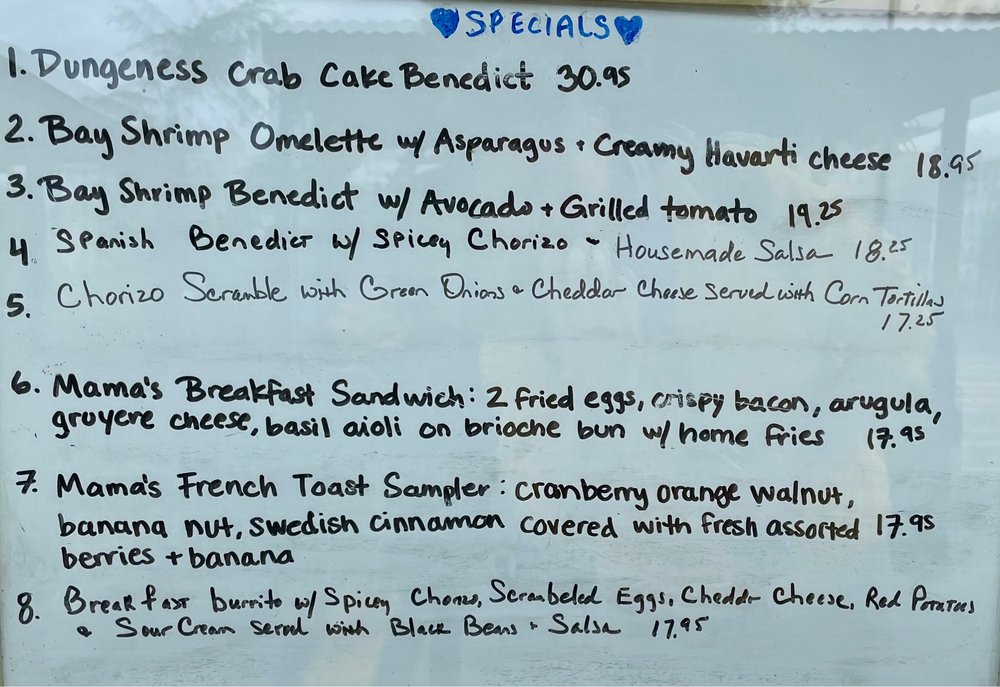 💙SPECIALS💙
1. Dungeness Crab Cake Benedict 30.95
2. Bay Shrimp Omelette w/ Asparagus + Creamy Havarti cheese 18.95
3. Bay Shrimp Benedict w/ Avocado + Grilled tomato 19.25
4. Spanish Benedict w/ Spicey Chorizo ~ Housemade Salsa 18.25
5. Chorizo Scramble with Green Onions & Cheddar Cheese served with Corn Tortillas
17.25
6. Mama's Breakfast Sandwich: 2 fried eggs, crispy bacon, arugula,
gruyere cheese, basil aioli on brioche bun w/ home fries 17.95
7. Mama's French Toast Sampler: cranberry orange walnut,
banana nut, swedish cinnamon covered with fresh assorted 17.95
berries + banana
8. Breakfast burrito w/ Spicey Chorizo, Scrambeled Eggs, Cheddr Cheese, Red Potatoes
& Sour Cream served with Black Beans + Salsa 17.95